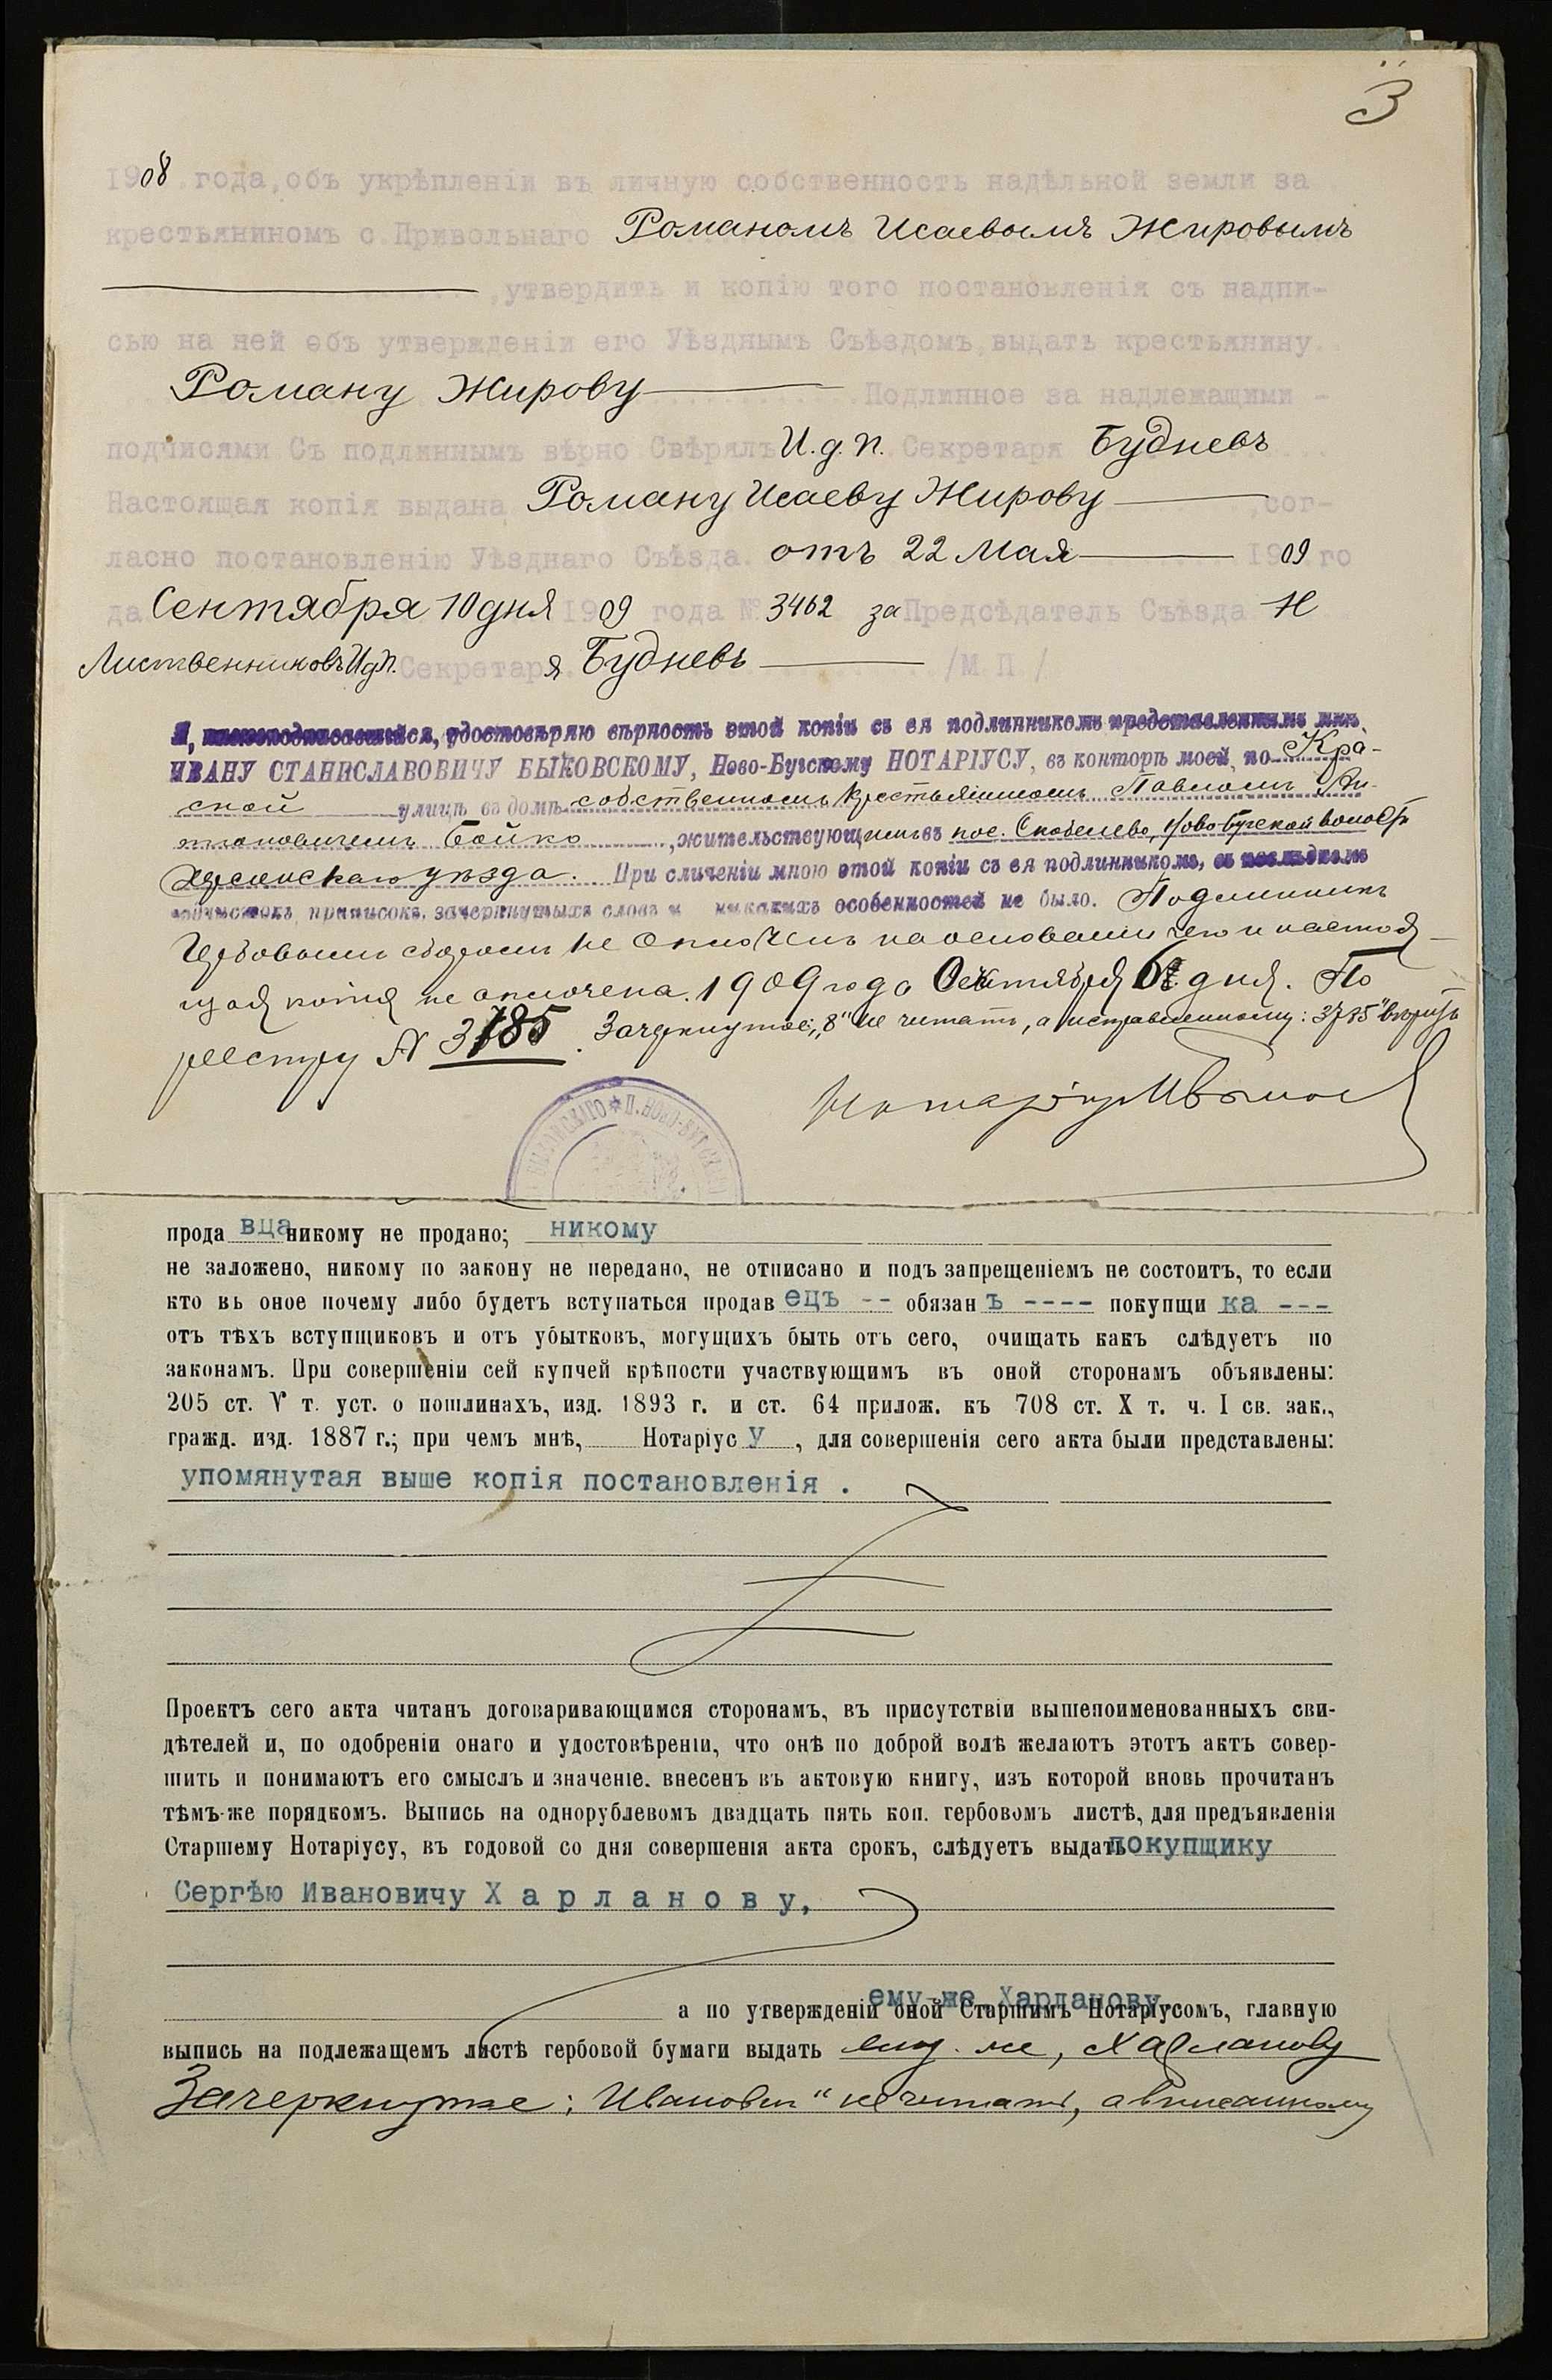 3
1908 года, объ укрѣпленіи въ личную собственность надѣльной земли за
крестьяниномъ с. Привольнаго Романомъ Исаевымъ Жировымъ
, утвердить и копію того постановленія съ надпи-
сью на ней объ утвержденіи его Уѣзднымъ Съѣздомъ, выдать крестьянину
Роману Жирову Подлинное за надлежащими -
подписями Съ подлиннымъ вѣрно Свѣрялъ И.д.п. Секретаря Будневъ
Настоящая копія выдана Роману Исаеву Жирову, сог-
ласно постановленію Уѣзднаго Съѣзда. отъ 22 Мая 1909 го
да Сентября 10 дня 1909 года № 3462 за Предсѣдатель Съѣзда Н
Лиственниковъ И.д.п. Секретаря Будневъ /М.П./
Я, нижеподписавшійся, удостовѣряю вѣрность этой копіи съ ея подлинникомъ представленнымъ мнѣ,
ИВАНУ СТАНИСЛАВОВИЧУ БЫКОВСКОМУ, Ново-Бугскому НОТАРІУСУ, въ конторѣ моей, по Кра-
сной улицѣ въ домѣ собственномъ, крестьяниномъ Павломъ
Бойко, жительствующимъ въ пос. Скобелево, Ново-Бугской волости
Херсонскаго уѣзда. При сличеніи мною этой копіи съ ея подлинникомъ, въ послѣднемъ
подчистокъ, приписокъ, зачеркнутыхъ словъ и никакихъ особенностей не было. Подлинникъ
Гербовымъ сборомъ не оплоченъ на основаніи чего и настоя-
щая копія не оплочена. 1909 года Октября 6 дня. По
реестру N 3785. Зачеркнутое: „8" не читать, а исправленному: 3785" вѣрить
Нотаріусъ И Быков
П. НОВО-БУГСК
прода вца никому не продано; никому
не заложено, никому по закону не передано, не отписано и подъ запрещеніемъ не состоитъ, то если
кто въ оное почему либо будетъ вступаться продав ецъ -- обязан ъ ---- покупщи ка ---
отъ тѣхъ вступщиковъ и отъ убытковъ, могущихъ быть отъ сего, очищать какъ слѣдуетъ по
законамъ. При совершеніи сей купчей крѣпости участвующимъ въ оной сторонамъ объявлены:
205 ст. V т. уст. о пошлинахъ, изд. 1893 г. и ст. 64 прилож. къ 708 ст. X т. ч. I св. зак.,
гражд. изд. 1887 г.; при чемъ мнѣ, Нотаріус у, для совершенія сего акта были представлены:
упомянутая выше копія постановленія .
Проектъ сего акта читанъ договаривающимся сторонамъ, въ присутствіи вышепоименованныхъ сви-
дѣтелей и, по одобреніи онаго и удостовѣреніи, что онѣ по доброй волѣ желаютъ этотъ актъ совер-
шить и понимаютъ его смыслъ и значеніе. внесенъ въ актовую книгу, изъ которой вновь прочитанъ
тѣмъ-же порядкомъ. Выпись на однорублевомъ двадцать пять коп. гербовомъ листѣ, для предъявленія
Старшему Нотаріусу, въ годовой со дня совершенія акта срокъ, слѣдуетъ выдать покупщику
Сергѣю Ивановичу Х а р л а н о в у,
ему-же, Харланову
а по утвержденіи оной Старшимъ Нотаріусомъ, главную
выпись на подлежащемъ листѣ гербовой бумаги выдать ему-же, Харланову
Зачеркнутое: Иванович" не читать, а вписанному